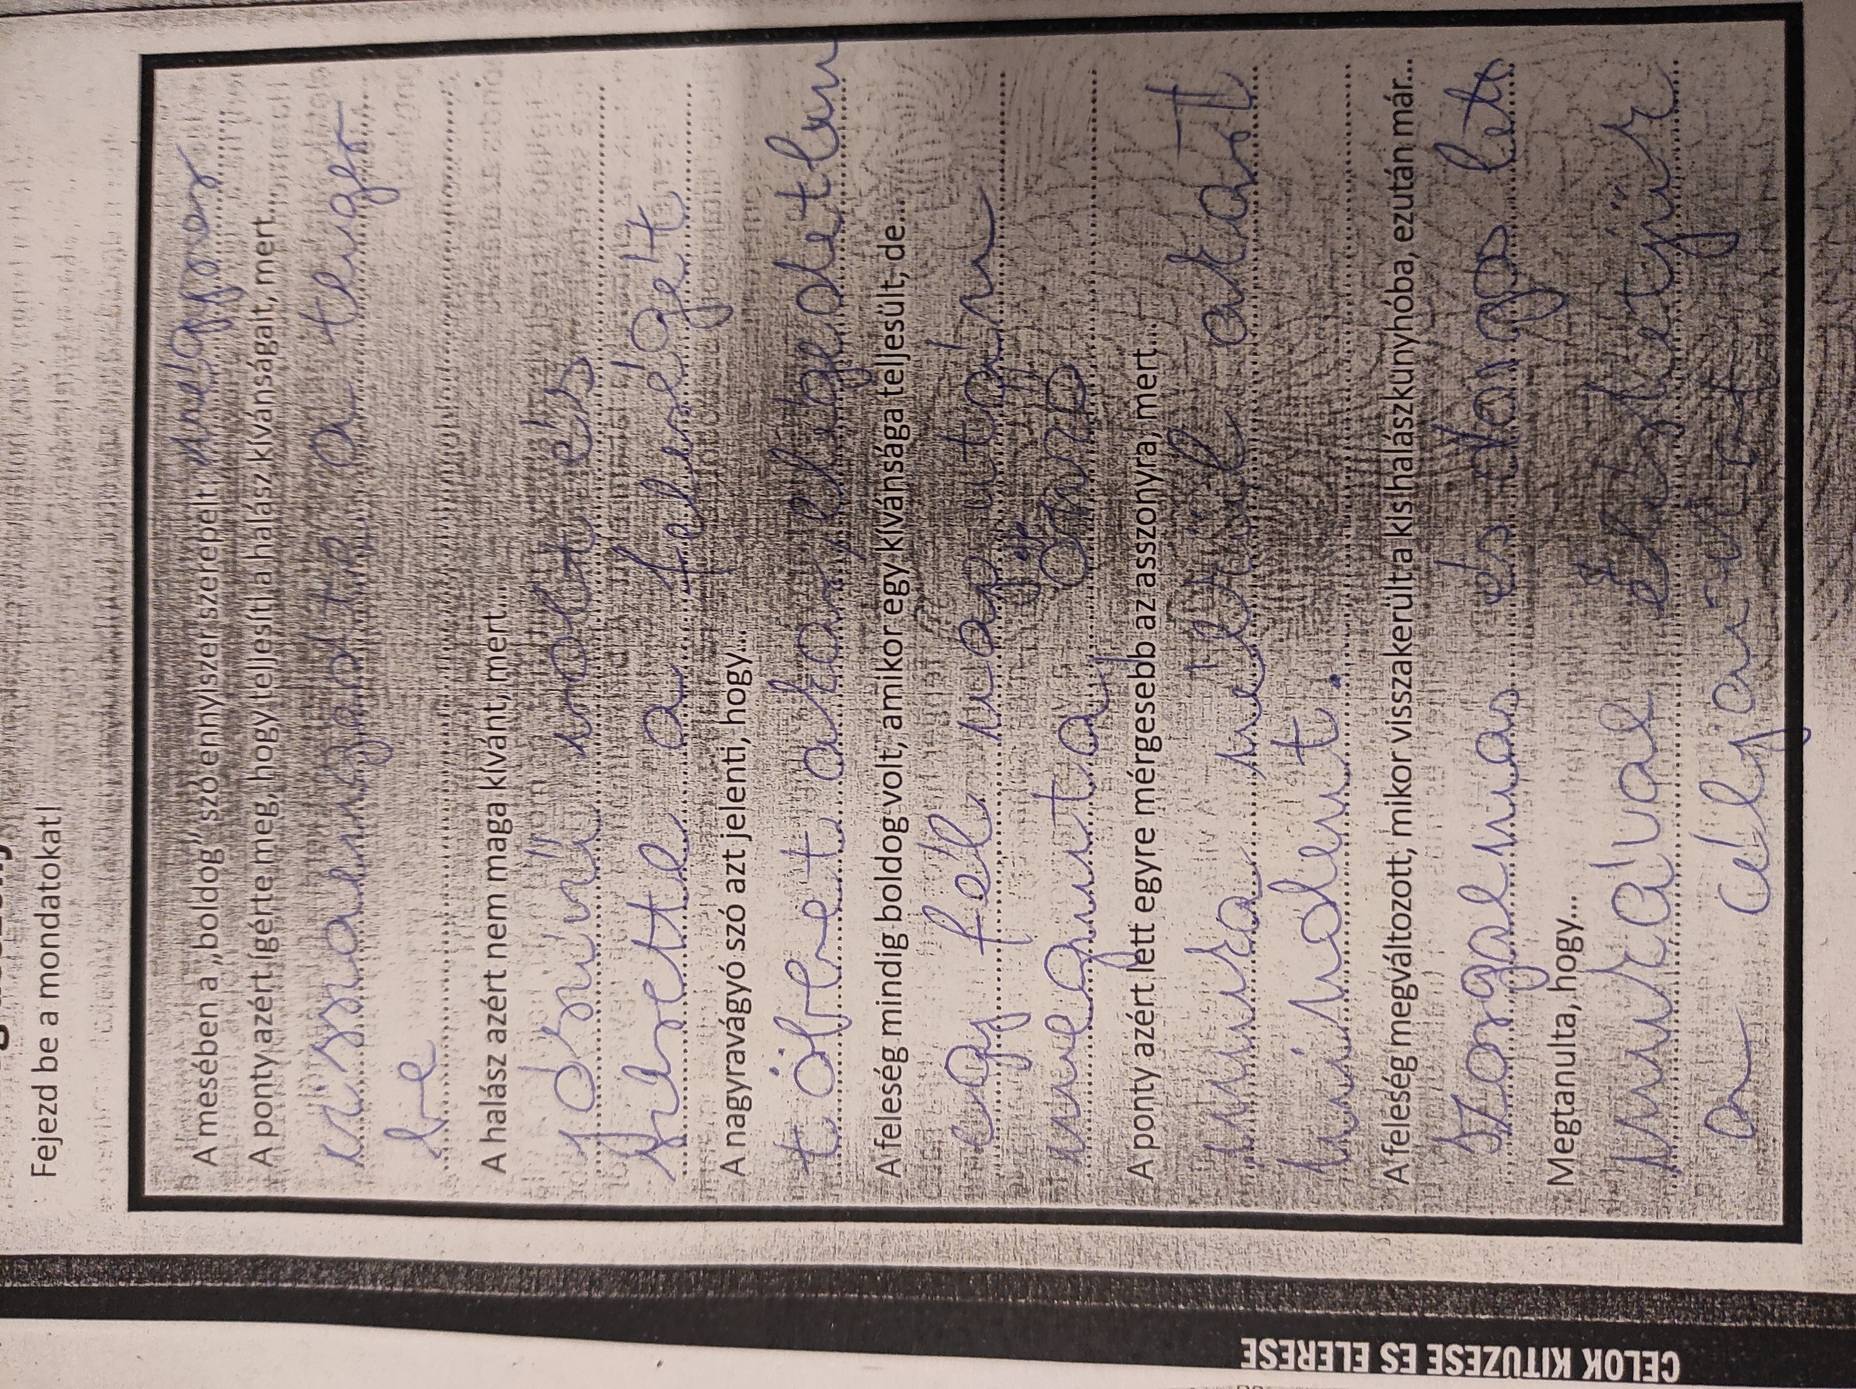 Fejezd be a mondatokat!
A mesében a „boldog” szó ennyiszer szerepelt:
A ponty azért ígérte meg, hogy teljesíti a halász kívánságait, mert...
a tenger
be
A halász azért nem maga kívánt, mert...
jószívű volt és
szerette a feleségét
A nagyravágyó szó azt jelenti, hogy...
többet akar, elégedetlen
A feleség mindig boldog volt, amikor egy kívánsága teljesült, de...
egy fél nap után
megunta
A ponty azért lett egyre mérgesebb az asszonyra, mert...
munka nélkül akart
mindent.
A feleség megváltozott, mikor visszakerült a kis halászkunyhóba, ezután már...
szorgalmas és
Megtanulta, hogy...
munkával
a céljait
CÉLOK KITŰZÉSE ÉS ELÉRÉSE